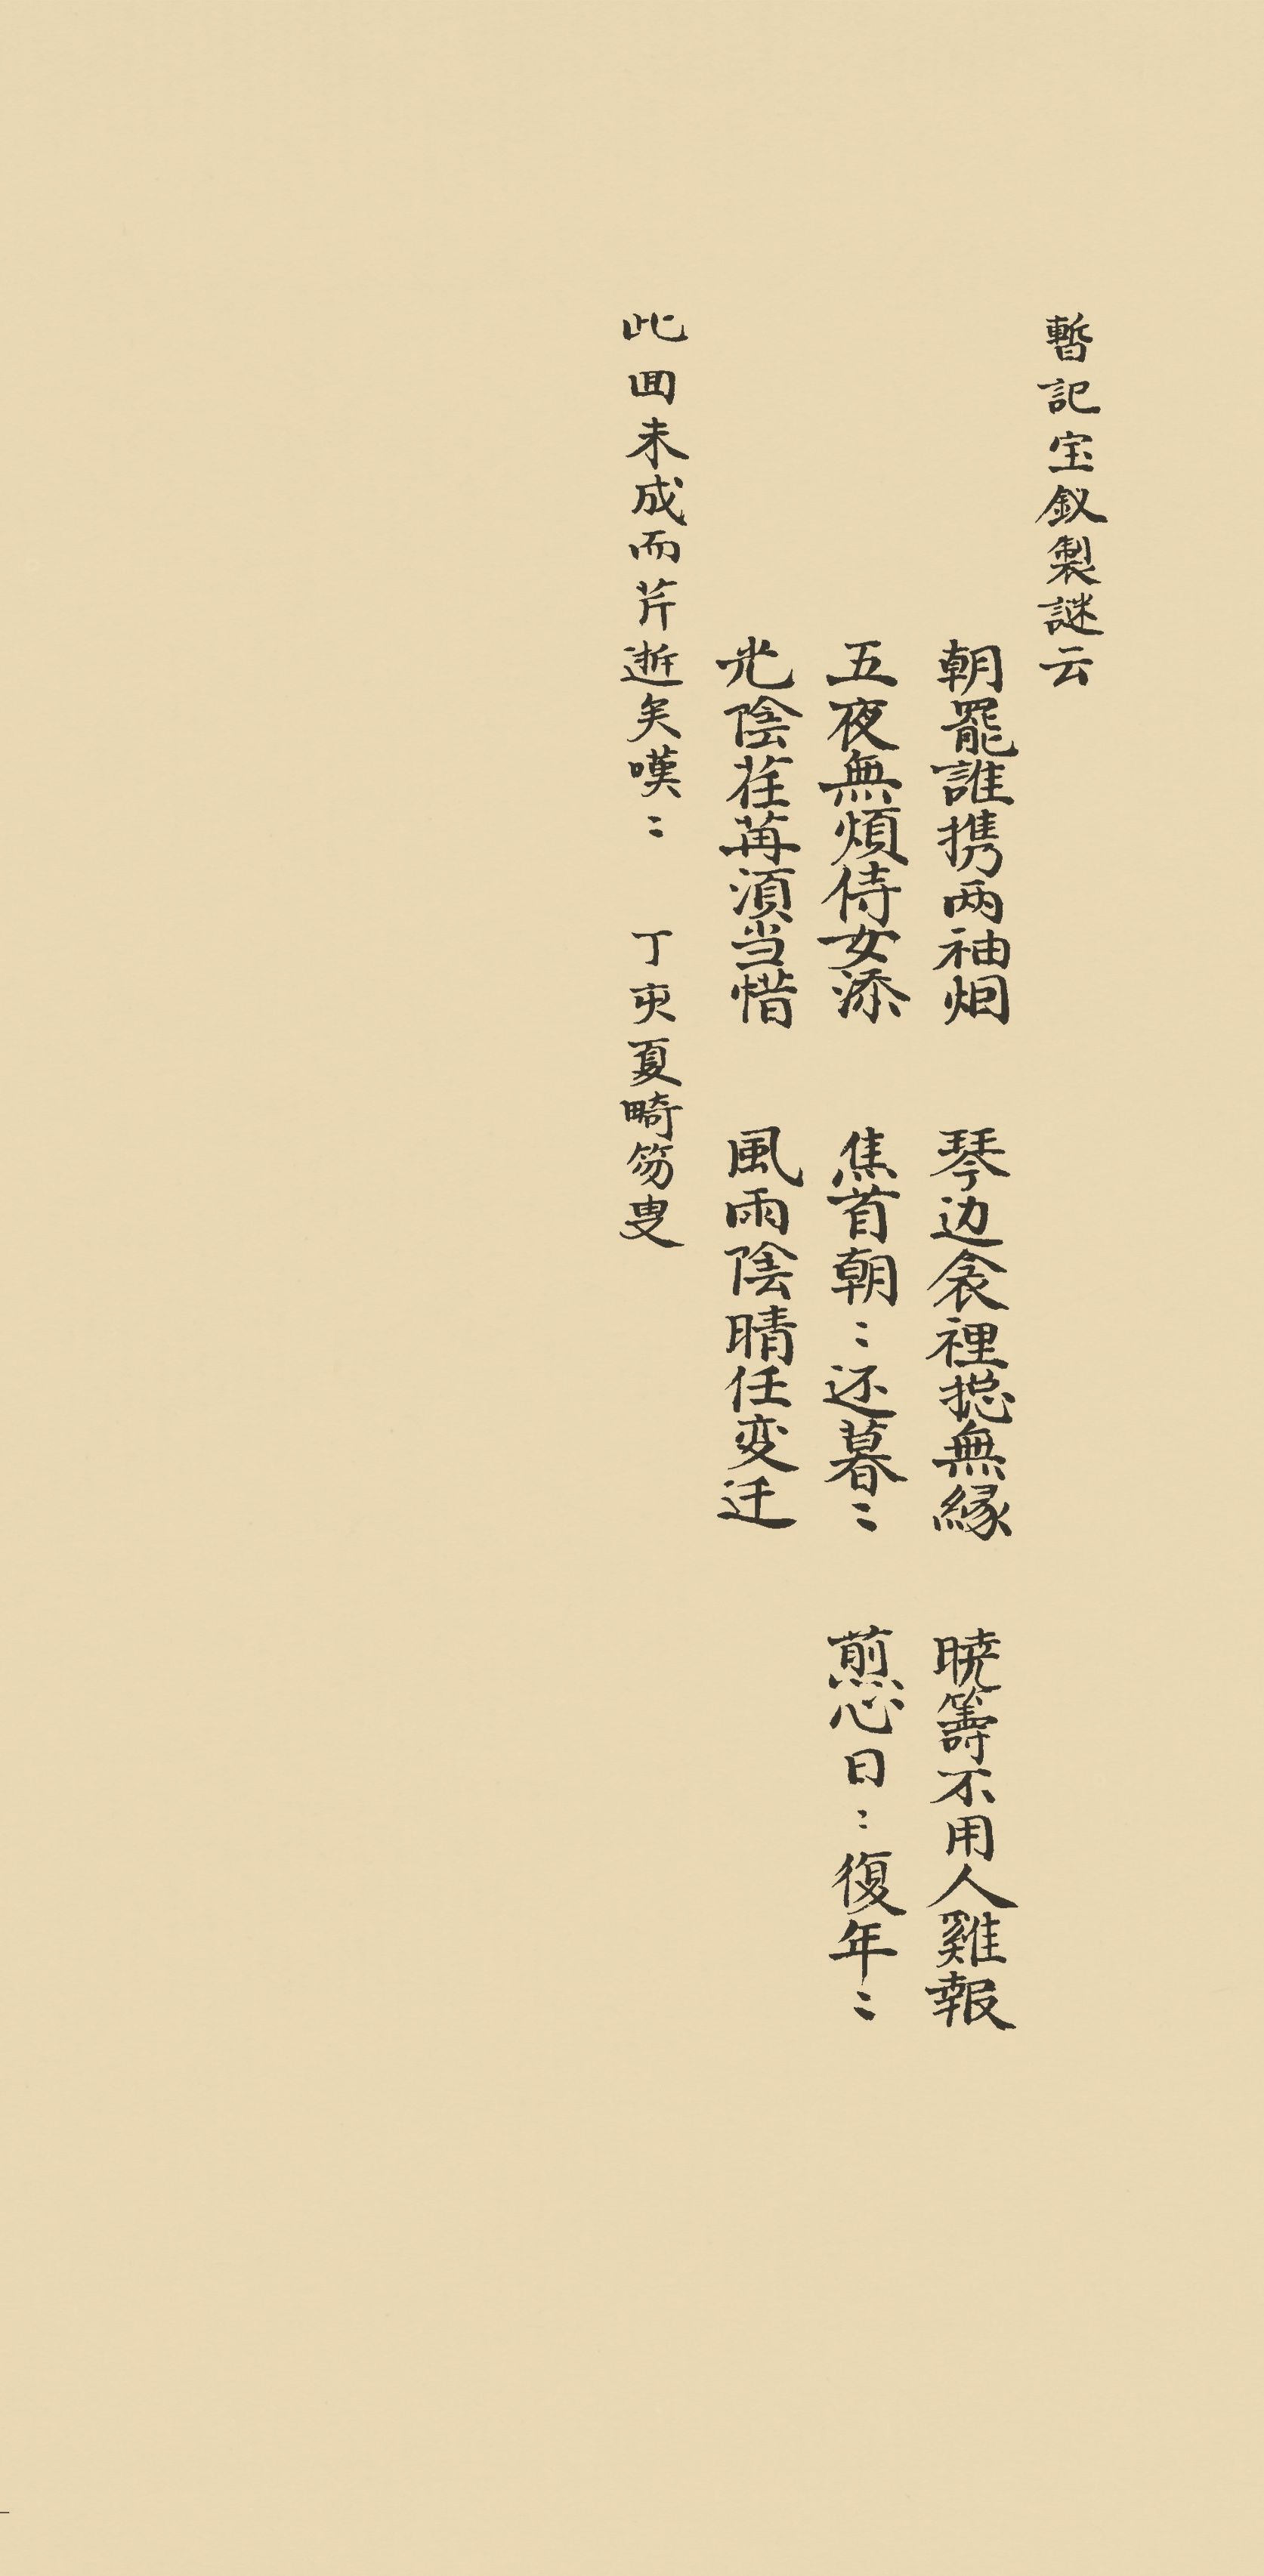 暫記宝釵製謎云
朝罷誰携两袖烟 琴边衾裡摠無縁 暁籌不用人雞報
五夜無煩侍女添 焦首朝〻还暮〻 煎心日〻復年〻
光陰荏苒湏当惜 風雨陰晴任变迁
此囬未成而芹逝矣嘆〻 丁亥夏畸笏叟